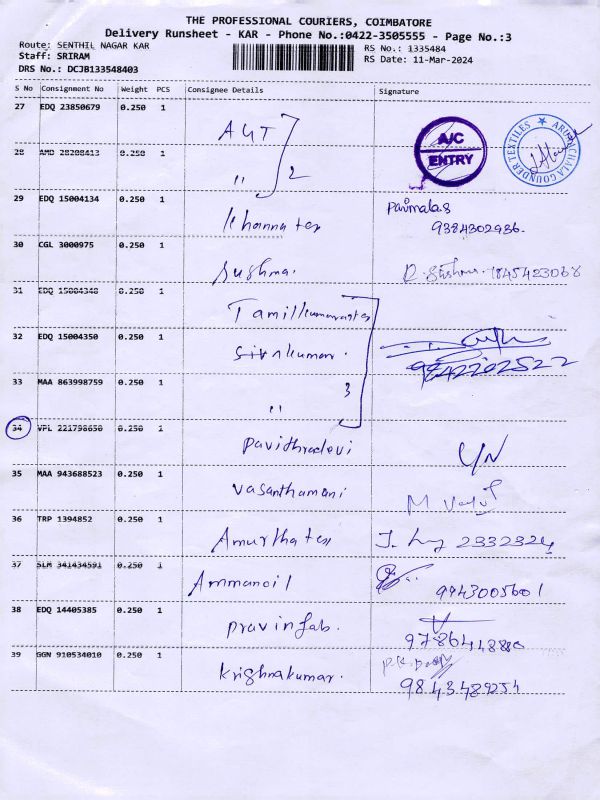 THE PROFESSIONAL COURIERS, COIMBATORE
Delivery Runsheet - KAR - Phone No.:0422-3505555 - Page No.:3
Route: SENTHIL NAGAR KAR
RS No.: 1335484
Staff: SRIRAM
RS Date: 11-Mar-2024
DRS No.: DCJB133548403
S No Consignment No Weight PCS Consignee Details Signature
27 EDQ 23850679 0.250 1
AGT
A/C ENTRY
ARUNACHALA GOUNDER TEXTILES
28 AMD 28208413 0.250 1
" 2
29 EDQ 15004134 0.250 1
Khanna tex
9384302936.
30 CGL 3000975 0.250 1
Sushma.
31 EDQ 15004348 0.250 1
Tamilkumaran tex
32 EDQ 15004350 0.250 1
Sivakumar.
9842202522
33 MAA 863998759 0.250 1
" 3
34 VPL 221798650 0.250 1
Pavithradevi
35 MAA 943688523 0.250 1
Vasanthamani
36 TRP 1394852 0.250 1
Amurtha tex
37 SLM 341434591 0.250 1
Ammanoil
9943005601
38 EDQ 14405385 0.250 1
Pravin fab.
39 GGN 910534010 0.250 1
Krishnakumar.
9843489254